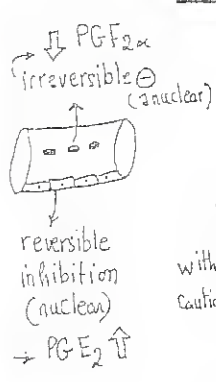 ⇩ PGF2α
irreversible ⊖
(anuclear)
reversible
inhibition
(nuclear)
→ PGE2 ⇧
with
Cautio